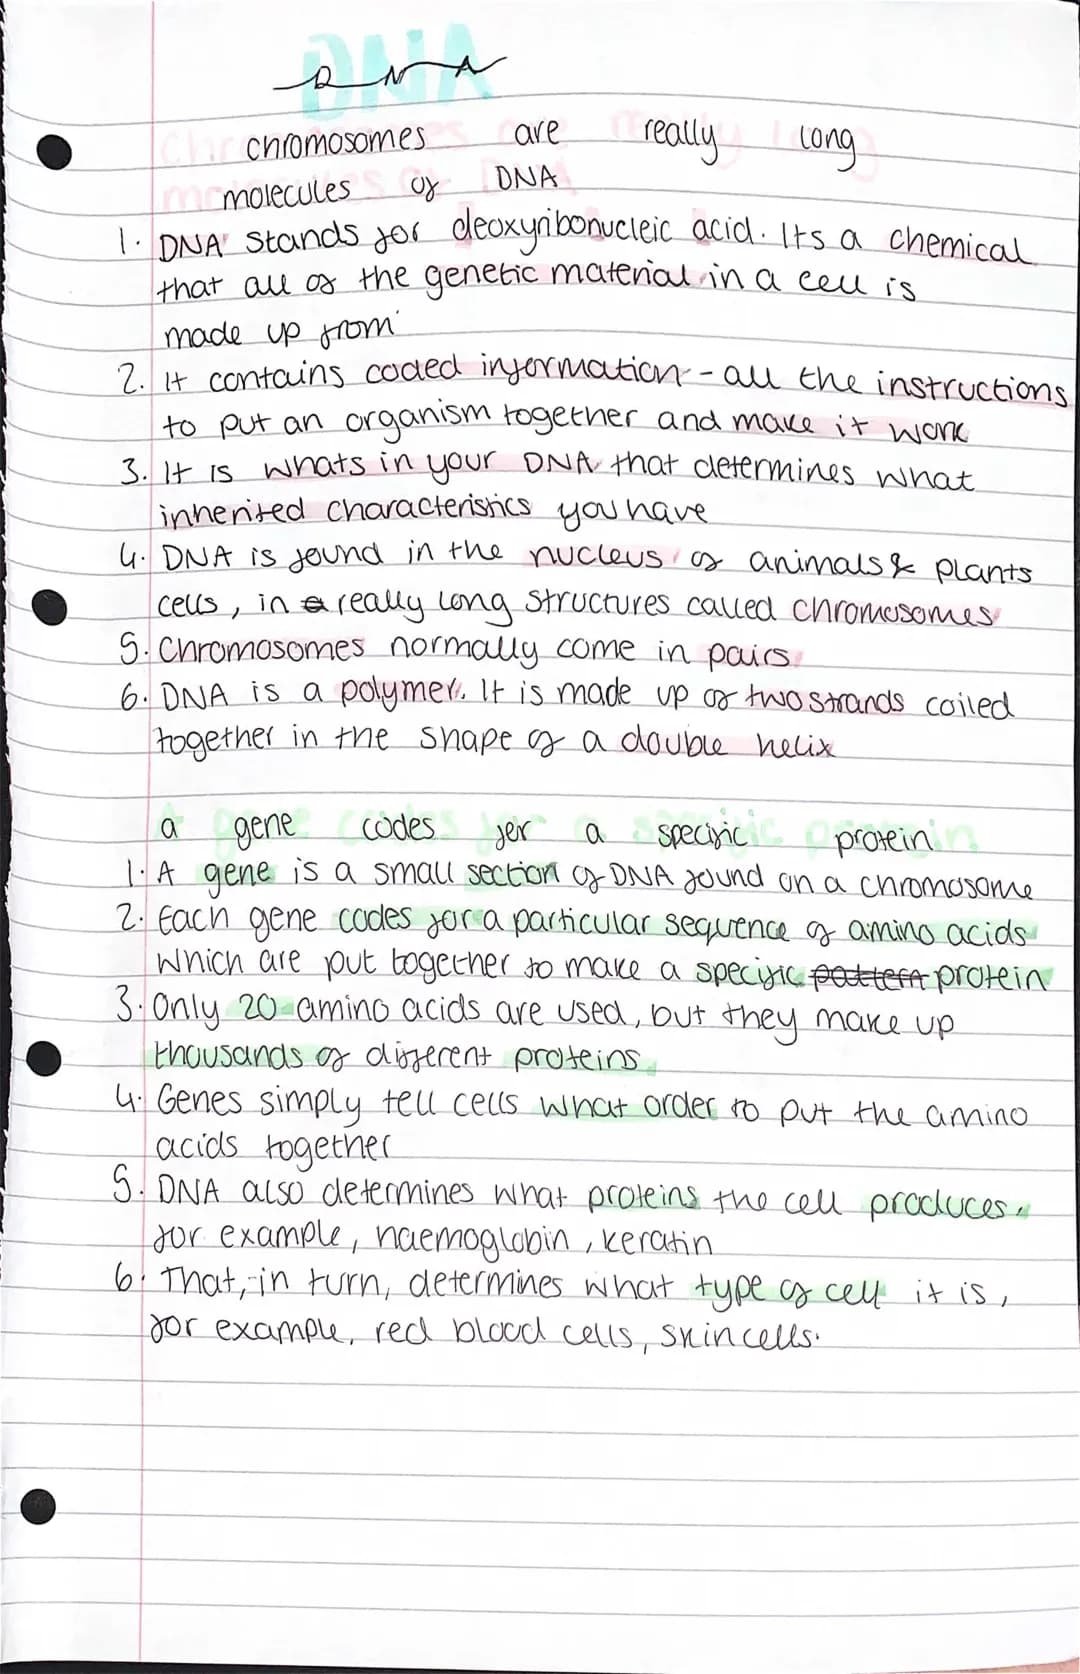 DNA
chromosomes are really long
molecules of DNA
1. DNA stands for deoxyribonucleic acid. Its a chemical
that all of the genetic material in a cell is
made up from
2. It contains coded information - all the instructions
to put an organism together and make it work
3. It is whats in your DNA that determines what
inherited characteristics you have
4. DNA is found in the nucleus of animals & plants
cells, in a really long structures called chromosomes
5. Chromosomes normally come in pairs
6. DNA is a polymer. It is made up of two strands coiled
together in the shape of a double helix
a gene codes for a specific protein
1. A gene is a small section of DNA found on a chromosome
2. Each gene codes for a particular sequence of amino acids
which are put together to make a specific pattern protein
3. Only 20 amino acids are used, but they make up
thousands of different proteins
4. Genes simply tell cells what order to put the amino
acids together
5. DNA also determines what proteins the cell produces,
for example, haemoglobin, keratin
6. That, in turn, determines what type of cell it is,
for example, red blood cells, skin cells.